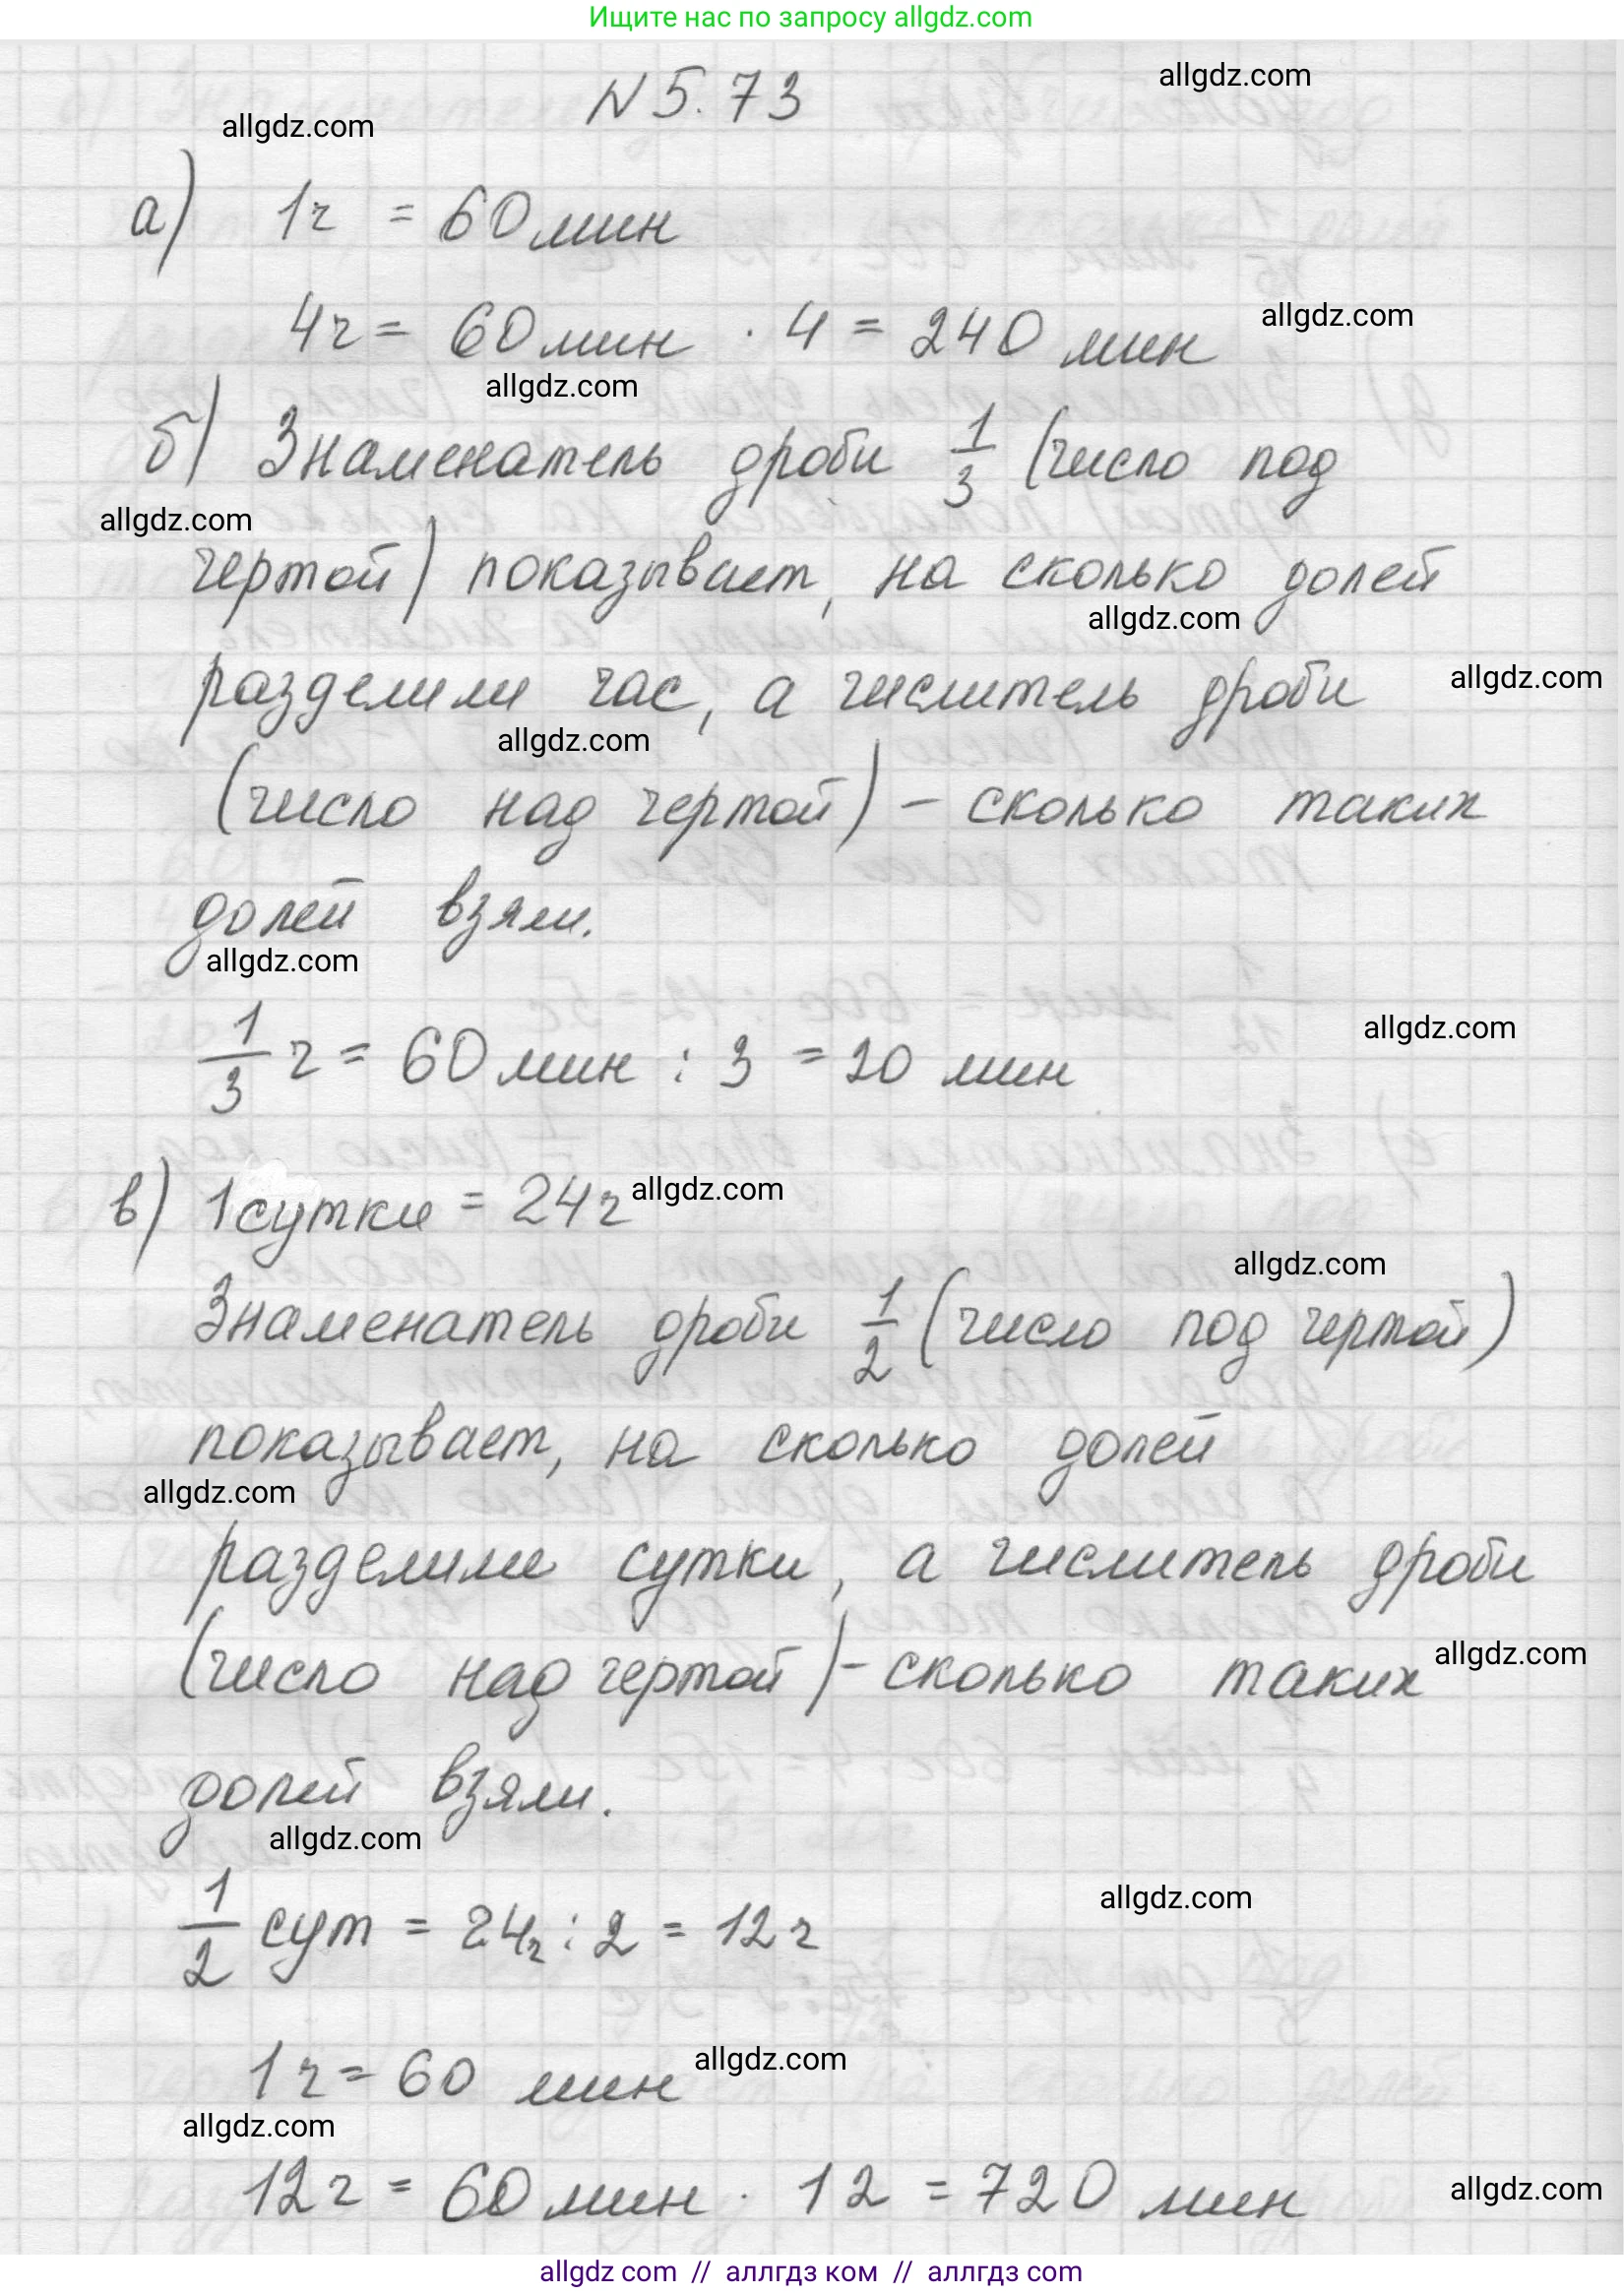 Ищите нас по запросу allgdz.com
allgdz.com
N 5.73
allgdz.com
а) 1г = 60 мин
allgdz.com
4г = 60 мин · 4 = 240 мин
allgdz.com
б) Знаменатель дроби 1/3 (число под
allgdz.com
чертой) показывает, на сколько долей
allgdz.com
разделили час, а числитель дроби
allgdz.com
allgdz.com
(число над чертой) – сколько таких
долей взяли.
allgdz.com
allgdz.com
1/3 г = 60 мин : 3 = 20 мин
в) 1 сутки = 24 г
allgdz.com
allgdz.com
Знаменатель дроби 1/2 (число под чертой)
показывает, на сколько долей
allgdz.com
разделили сутки, а числитель дроби
(число над чертой) – сколько таких
allgdz.com
долей взяли.
allgdz.com
allgdz.com
1/2 сут = 24г : 2 = 12 г
1 г = 60 мин
allgdz.com
allgdz.com
12 г = 60 мин · 12 = 720 мин
allgdz.com
allgdz com // аллгдз ком // аллгдз com